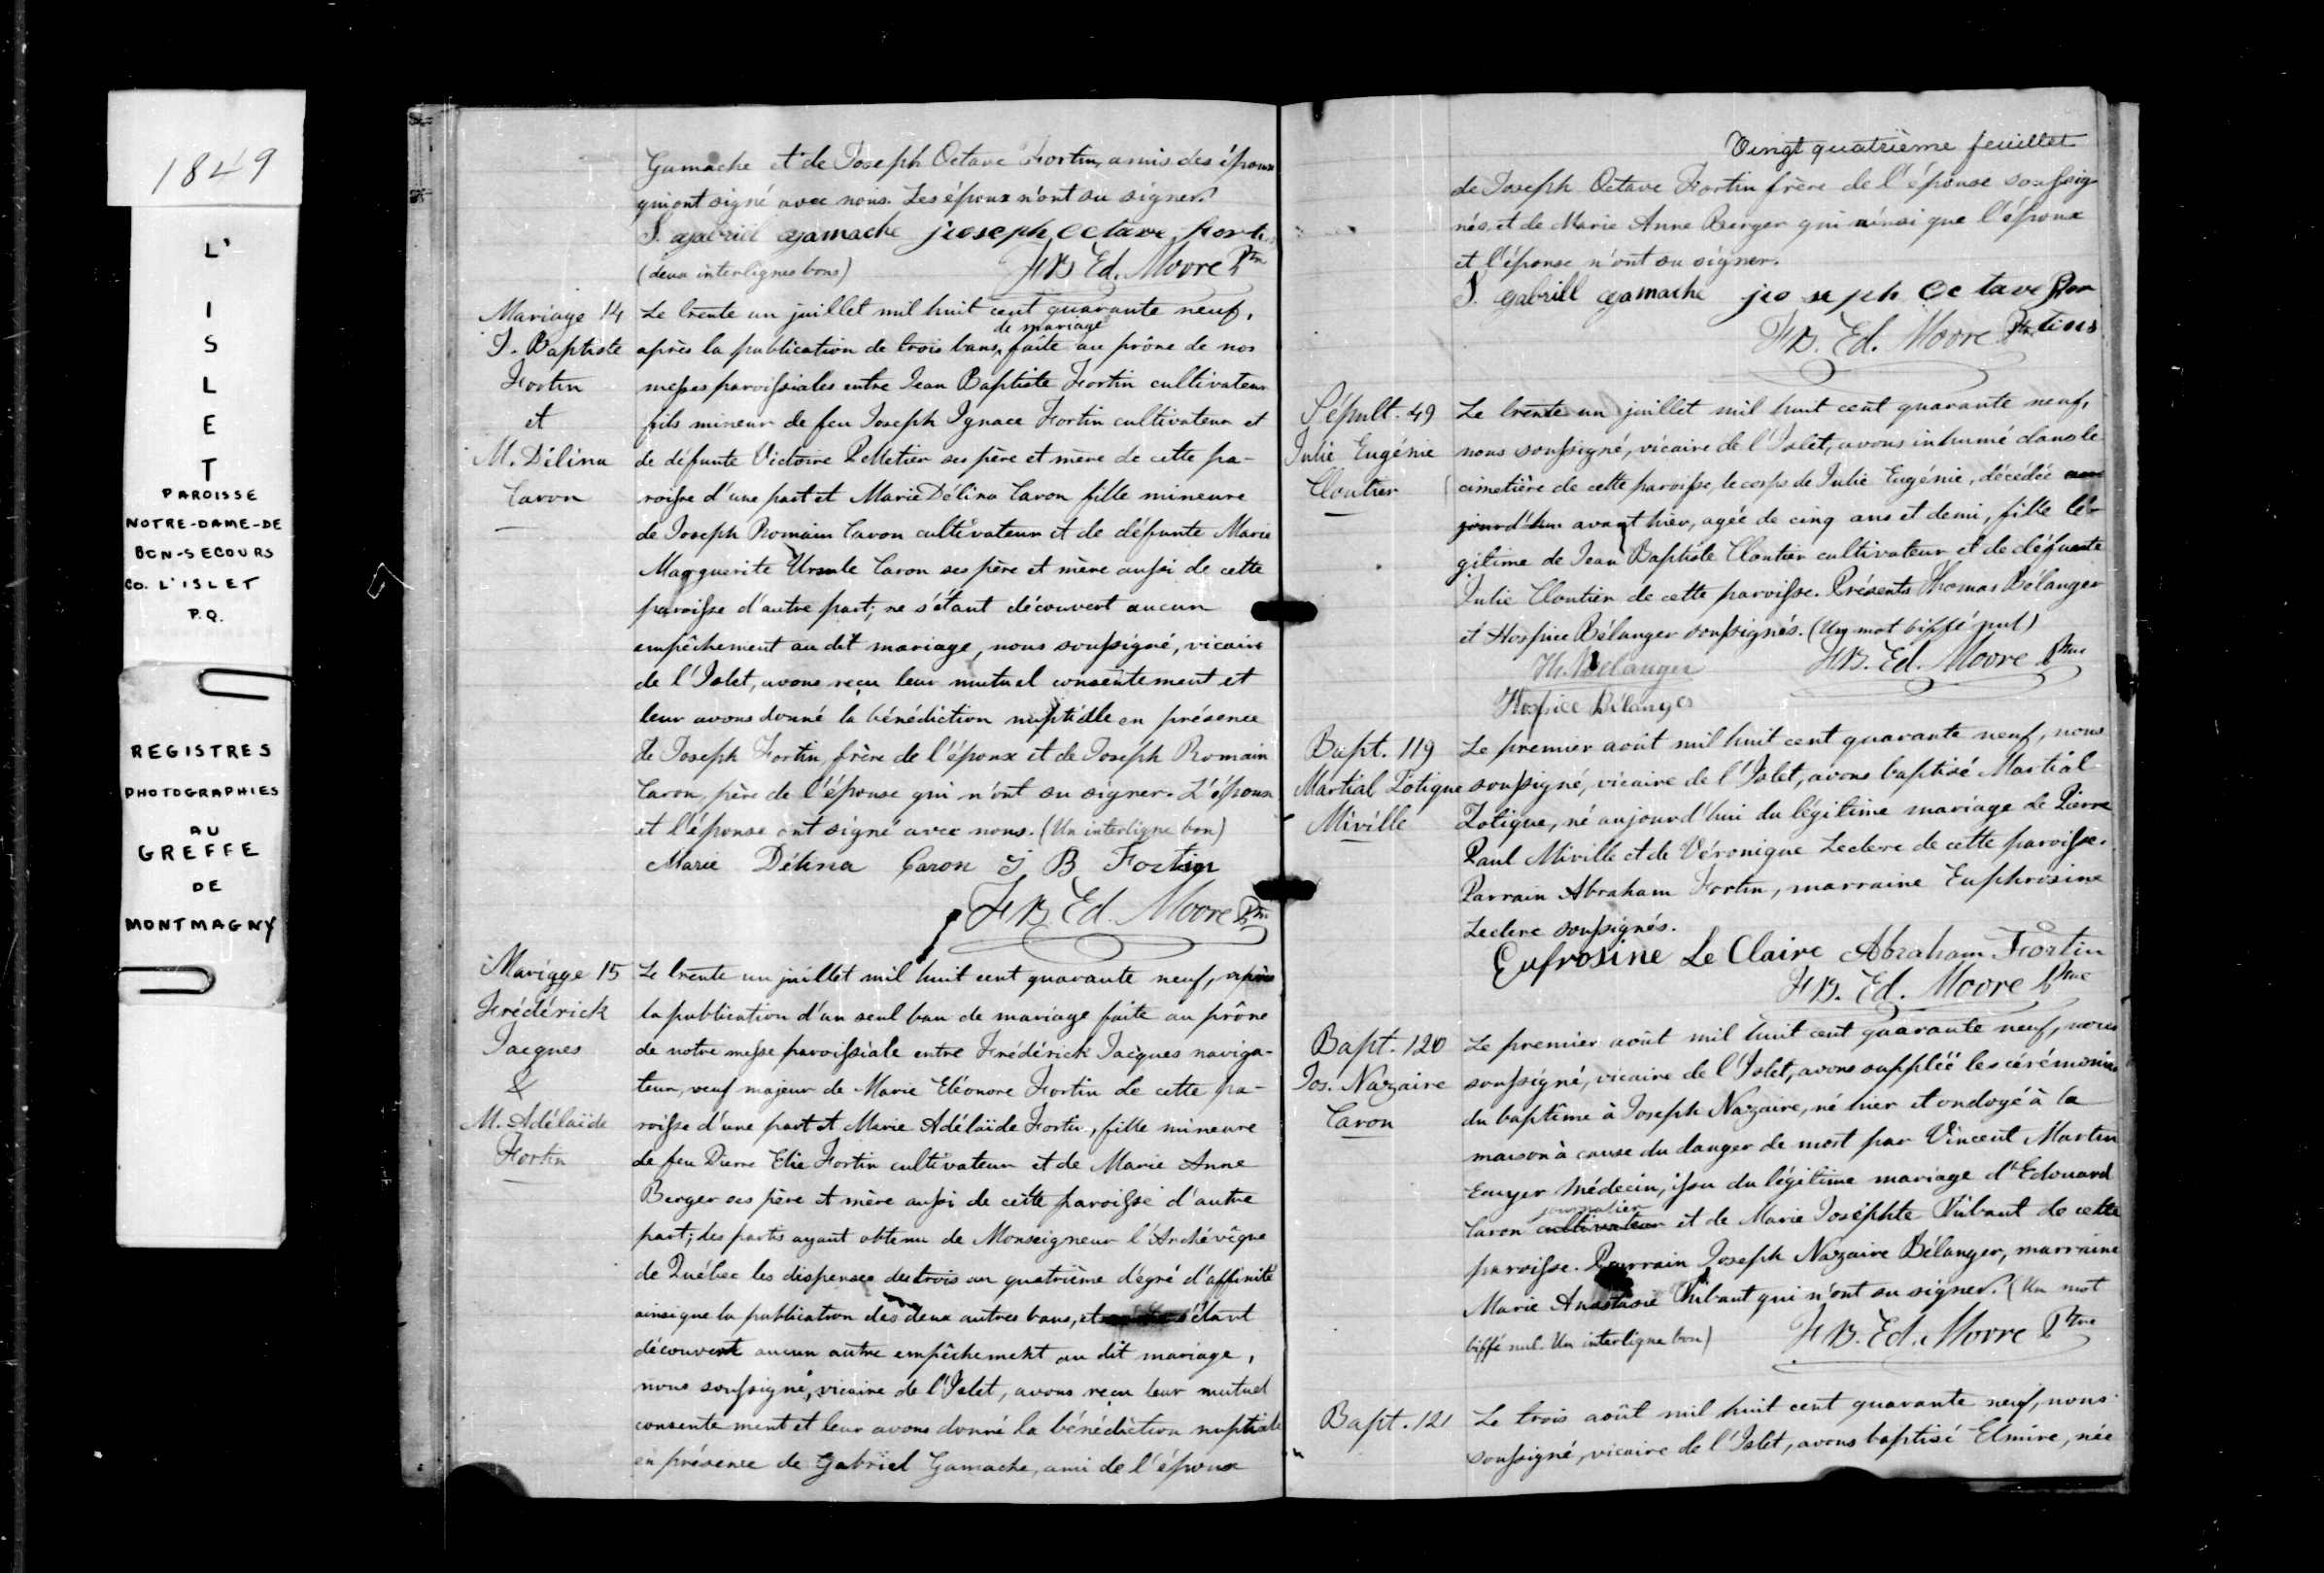 1849
L'
I
S
L
E
T
PAROISSE
NOTRE-DAME-DE
BON-SECOURS
CO. L'ISLET
P.Q.
REGISTRES
PHOTOGRAPHIES
AU
GREFFE
DE
MONTMAGNY
Gamache et de Joseph Octave Fortin, amis des époux
qui ont signé avec nous. Les époux n'ont su signer.
S. gabriel gamache joseph octave forti
(deux interlignes bons) F. B. Ed. Moore Ptre
Mariage 14
J. Baptiste
Fortin
et
M. Délina
Caron
Le trente un juillet mil huit cent quarante neuf,
de mariage
après la publication de trois bans, faite au prône de nos
messes paroissiales entre Jean Baptiste Fortin cultivateur
fils mineur de feu Joseph Ignace Fortin cultivateur et
de défunte Victoire Pelletier ses père et mère de cette pa-
roisse d'une part et Marie Délina Caron fille mineure
de Joseph Romain Caron cultivateur et de défunte Marie
Marguerite Ursule Caron ses père et mère aussi de cette
paroisse d'autre part; ne s'étant découvert aucun
empêchement au dit mariage, nous soussigné, vicaire
de l'Islet, avons reçu leur mutuel consentement et
leur avons donné la bénédiction nuptiale en présence
de Joseph Fortin, frère de l'époux et de Joseph Romain
Caron, père de l'épouse qui n'ont su signer. L'époux
et l'épouse ont signé avec nous. (Un interligne bon)
Marie Délina Caron J B Fortin
F. B. Ed. Moore Ptre
Mariage 15
Frédérick
Jacques
&
M. Adélaïde
Fortin
Le trente un juillet mil huit cent quarante neuf, après
la publication d'un seul ban de mariage faite au prône
de notre messe paroissiale entre Frédérick Jacques naviga-
teur, veuf majeur de Marie Eléonore Fortin de cette pa-
roisse d'une part et Marie Adélaïde Fortin, fille mineure
de feu Pierre Elie Fortin cultivateur et de Marie Anne
Berger ses père et mère aussi de cette paroisse d'autre
part; les partis ayant obtenu de Monseigneur l'Archévêque
de Québec les dispenses du trois au quatrième dégré d'affinité
ainsi que la publication des deux autres bans, et s'étant
découvert aucun autre empêchement au dit mariage,
nous soussigné, vicaire de l'Islet, avons reçu leur mutuel
consentement et leur avons donné la bénédiction nuptiale
en présence de Gabriel Gamache, ami de l'époux
Vingt quatrième feuillet
de Joseph Octave Fortin frère de l'épouse soussig-
nés, et de Marie Anne Berger qui ainsi que l'époux
et l'épouse n'ont su signer.
S. gabrill gamache joseph octave For
tins
F. B. Ed. Moore Ptre
Sépult. 49
Julie Eugénie
Cloutier
Le trente un juillet mil huit cent quarante neuf,
nous soussigné, vicaire de l'Islet, avons inhumé dans le
cimetière de cette paroisse, le corps de Julie Eugénie, décédée au
jourd'hui avant hier, agée de cinq ans et demi, fille lé-
gitime de Jean Baptiste Cloutier cultivateur et de défunte
Julie Cloutier de cette paroisse. Présents Thomas Bélanger
et Hospice Bélanger soussignés. (Un mot biffé nul)
Th. Bélanger F. B. Ed. Moore Ptre
Hospice Bélanger
Bapt. 119
Martial Zotique
Miville
Le premier août mil huit cent quarante neuf, nous
soussigné, vicaire de l'Islet, avons baptisé Martial
Zotique, né aujourd'hui du légitime mariage de Pierre
Paul Miville et de Véronique Leclerc de cette paroisse.
Parrain Abraham Fortin, marraine Euphrosine
Leclerc soussignés.
Eufrosine Le Claire Abraham Fortin
F. B. Ed. Moore Ptre
Bapt. 120
Jos. Nazaire
Caron
Le premier août mil huit cent quarante neuf, nous
soussigné, vicaire de l'Islet, avons suppléé les cérémonies
du baptême à Joseph Nazaire, né hier et ondoyé à la
maison à cause du danger de mort par Vincent Martin
Ecuyer Médecin, issu du légitime mariage d'Edouard
journalier
Caron cultivateur et de Marie Joséphte Thibaut de cette
paroisse. Parrain Joseph Nazaire Bélanger, marraine
Marie Anastasie Thibaut qui n'ont su signer. (Un mot
biffé nul. Un interligne bon) F. B. Ed. Moore Ptre
Bapt. 121
Le trois août mil huit cent quarante neuf, nous
soussigné, vicaire de l'Islet, avons baptisé Elmire, née